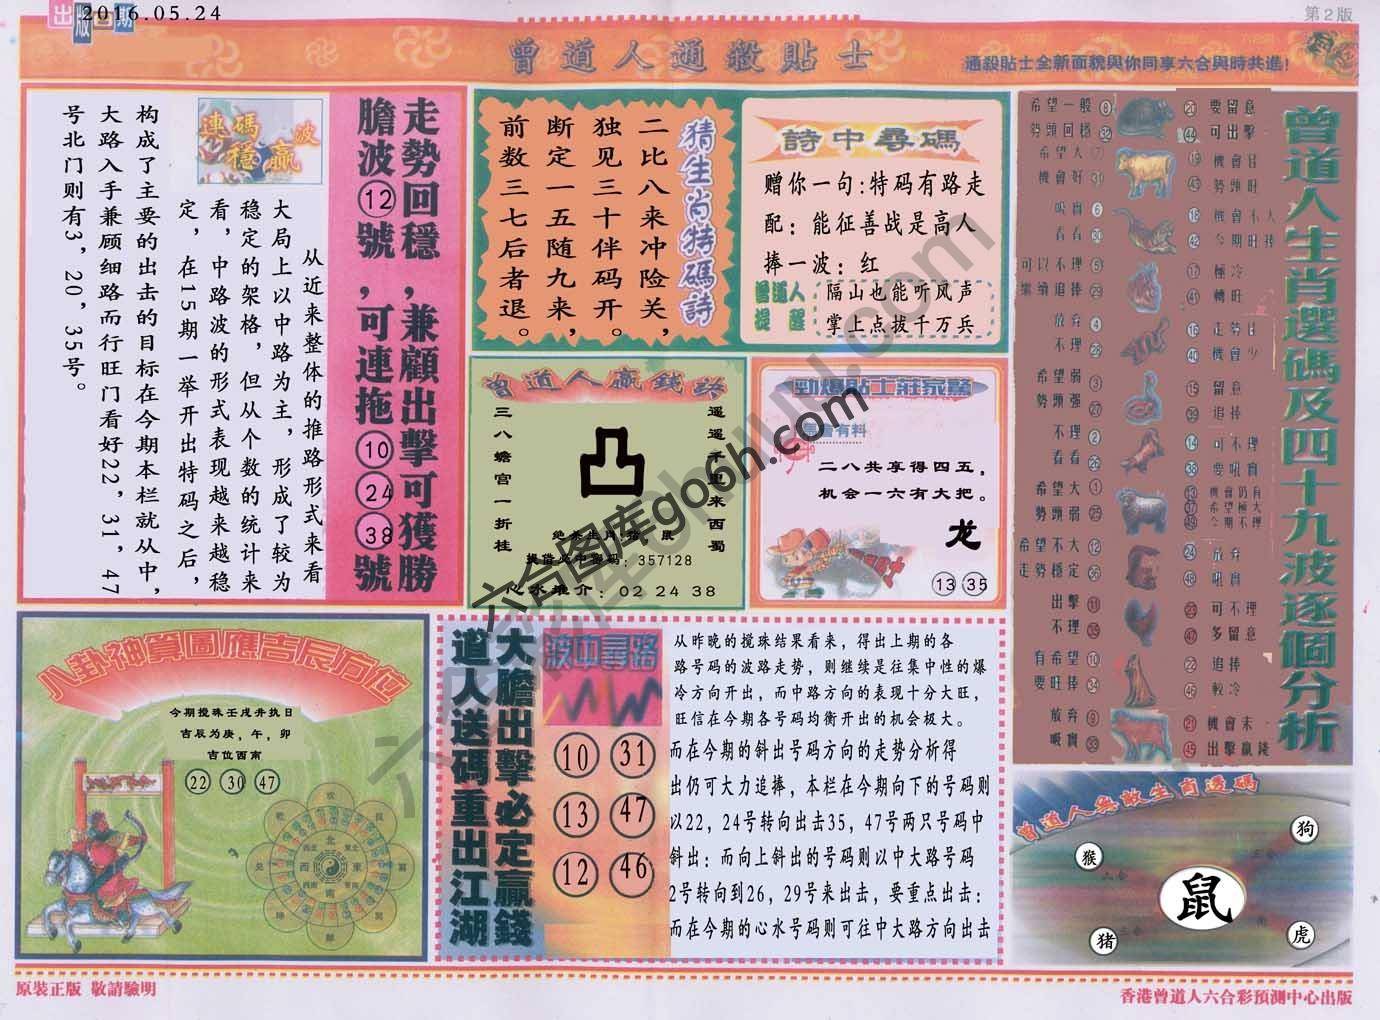 出版日期
2016.05.24
第2版
曾道人通殺貼士
通殺貼士全新面貌與你同享六合與時共進!
走勢回穩,兼顧出擊可獲勝
膽波⑫號,可連拖⑩㉔㊳號
連碼穩贏波
从近来整体的推路形式来看
大局上以中路为主,形成了较为
稳定的架格,但从个数的统计来
看,中路波的形式表现越来越稳
定,在15期一举开出特码之后,
构成了主要的出击的目标在今期本栏就从中,
大路入手兼顾细路而行旺门看好22,31,47
号北门则有3,20,35号。
猜生肖特碼詩
二比八来冲险关,
独见三十伴码开。
断定一五随九来,
前数三七后者退。
詩中尋碼
赠你一句:特码有路走
配:能征善战是高人
捧一波:红
曾道人提醒
隔山也能听风声
掌上点拔千万兵
曾道人贏錢訣
遥遥千里来西蜀
凸
三八蟾宫一折桂
绝杀生肖:猪
提借必中密码:357128
心水推介:02 24 38
勁爆貼士莊家驚
二八共享得四五,
机会一六有大把。
龙
13 35
曾道人生肖選碼及四十九波逐個分析
希望一般 ⑧ ⑳ 要留意
勢頭回穩 ㉜ ㊹ 可出擊
希望大 ⑦ ⑲ 機會甘
機會好 ㉛ ㊸ 勢頭旺
吸實 ⑥ ⑱ 機會不大
看看 ㉚ ㊷ 今期旺捧
可以不理 ⑤ ⑰ 極冷
繼續追捧 ㉙ ㊶ 轉旺
放弃 ④ ⑯ 走勢甘
不理 ㊵ 機會少
希望弱 ③ ⑮ 留意
勢頭强 ㉗ ㊴ 追捧
不理 ② ⑭ 可不理
看看 ㉖ ㊳ 要吼實
希望大 ① ⑬ 機會仍有
㊲ 希望極大
勢頭弱 ㉕ ㊾ 今期不理
希望不大 ⑫ ㉔ 放弃
走勢穩定 ㊱ ㊽ 吼實
出擊 ⑪ ㉓ 可不理
不理 ㉟ ㊼ 多留意
有希望 ⑩ ㉒ 追捧
要旺捧 ㉞ ㊻ 較冷
放弃 ⑨ ㉑ 機會末
吸實 ㉝ ㊺ 出擊贏錢
八卦神算圖應吉辰方位
今期搅珠壬戌井执日
吉辰为庚,午,卯
吉位西南
22 30 47
北
西
東
南
大膽出擊必定贏錢
道人送碼重出江湖
波中尋路
10 31
13 47
12 46
从昨晚的搅珠结果看来,得出上期的各
路号码的波路走势,则继续是往集中性的爆
冷方向开出,而中路方向的表现十分大旺,
旺信在今期各号码均衡开出的机会极大。
而在今期的斜出号码方向的走势分析得
出仍可大力追捧,本栏在今期向下的号码则
以22,24号转向出击35,47号两只号码中
斜出:而向上斜出的号码则以中大路号码
2号转向到26,29号来出击,要重点出击:
而在今期的心水号码则可往中大路方向出击
曾道人無敵生肖透碼
猴
狗
鼠
猪
虎
六合图库go6h.com
原裝正版 敬請驗明
香港曾道人六合彩預測中心出版